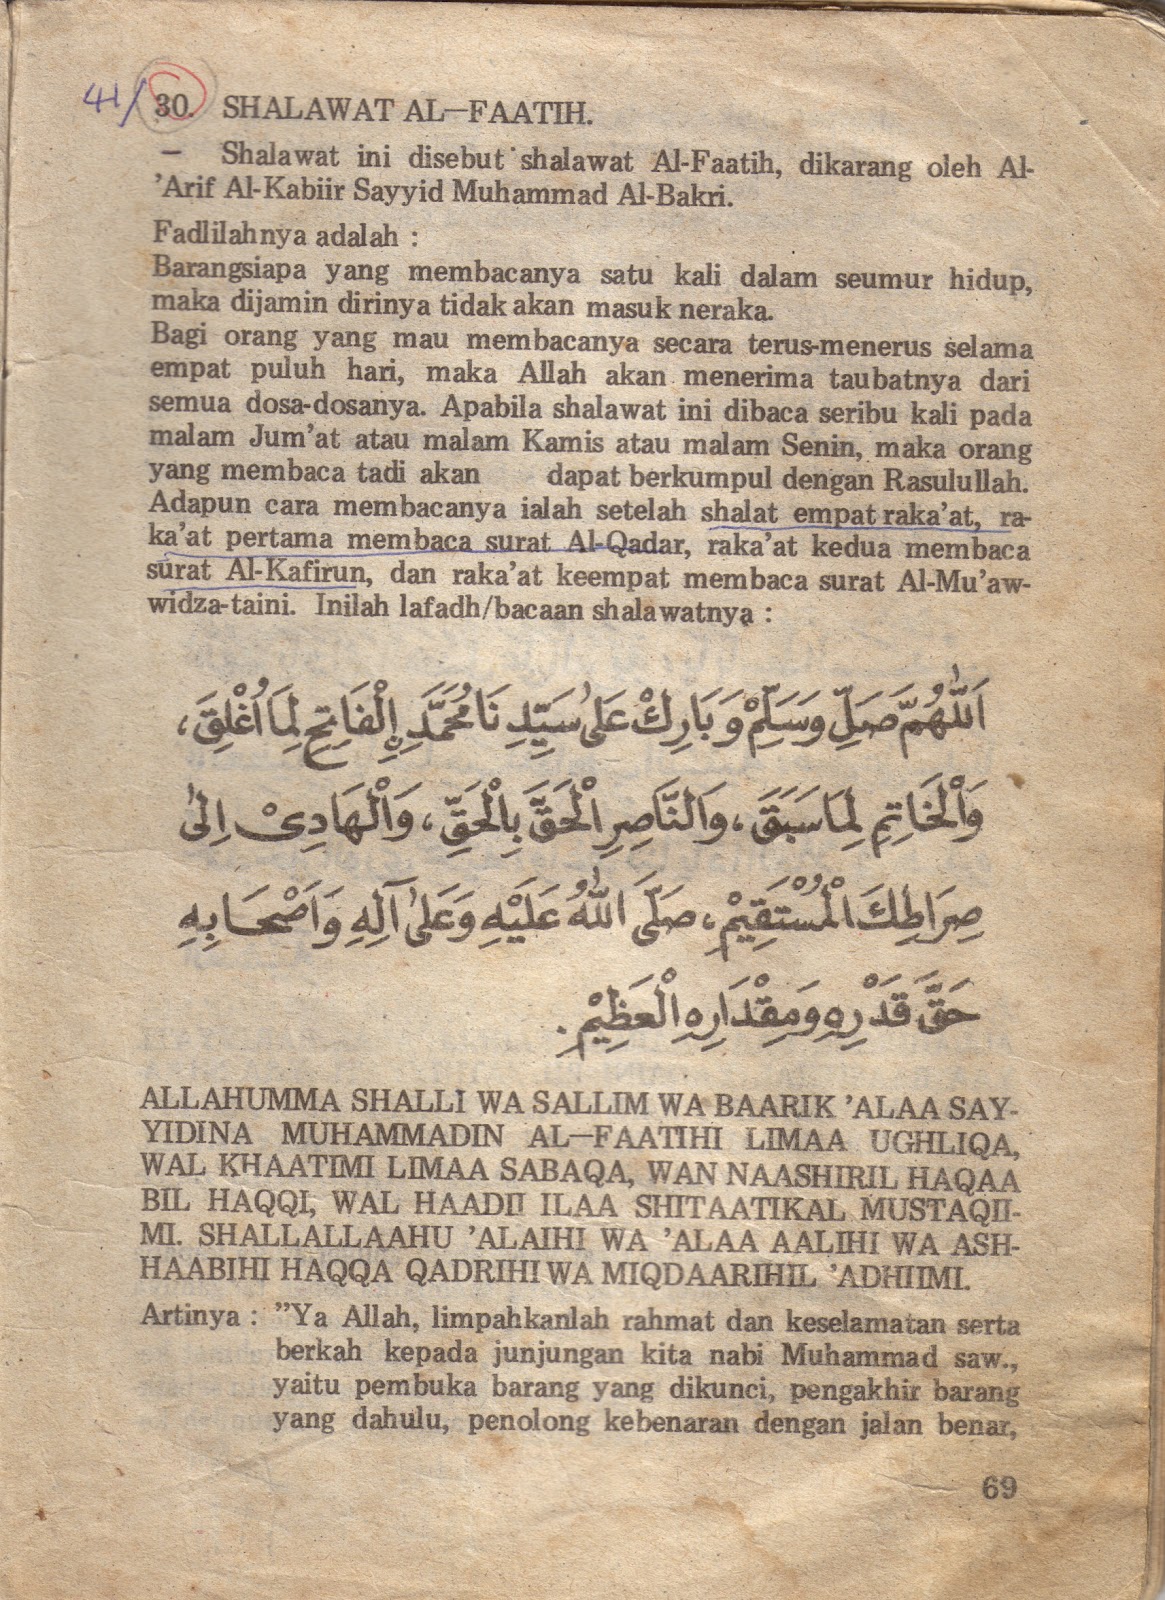 41/ 30. SHALAWAT AL—FAATIH.
— Shalawat ini disebut shalawat Al-Faatih, dikarang oleh Al-
’Arif Al-Kabiir Sayyid Muhammad Al-Bakri.
Fadlilahnya adalah :
Barangsiapa yang membacanya satu kali dalam seumur hidup,
maka dijamin dirinya tidak akan masuk neraka.
Bagi orang yang mau membacanya secara terus-menerus selama
empat puluh hari, maka Allah akan menerima taubatnya dari
semua dosa-dosanya. Apabila shalawat ini dibaca seribu kali pada
malam Jum’at atau malam Kamis atau malam Senin, maka orang
yang membaca tadi akan dapat berkumpul dengan Rasulullah.
Adapun cara membacanya ialah setelah shalat empat raka’at, ra-
ka’at pertama membaca surat Al-Qadar, raka’at kedua membaca
surat Al-Kafirun, dan raka’at keempat membaca surat Al-Mu’aw-
widza-taini. Inilah lafadh/bacaan shalawatnya :
اَللّٰهُمَّ صَلِّ وَسَلِّمْ وَبَارِكْ عَلٰى سَيِّدِنَا مُحَمَّدٍ اِلْفَاتِحِ لِمَا اُغْلِقَ،
وَالْخَاتِمِ لِمَا سَبَقَ، وَالنَّاصِرِ الْحَقَّ بِالْحَقِّ، وَالْهَادِىْ اِلٰى
صِرَاطِكَ الْمُسْتَقِيْمِ، صَلَّى اللّٰهُ عَلَيْهِ وَعَلٰى آلِهِ وَاَصْحَابِهِ
حَقَّ قَدْرِهِ وَمِقْدَارِهِ الْعَظِيْمِ.
ALLAHUMMA SHALLI WA SALLIM WA BAARIK ’ALAA SAY-
YIDINA MUHAMMADIN AL—FAATIHI LIMAA UGHLIQA,
WAL KHAATIMI LIMAA SABAQA, WAN NAASHIRIL HAQAA
BIL HAQQI, WAL HAADII ILAA SHITAATIKAL MUSTAQII-
MI. SHALLALLAAHU ’ALAIHI WA ’ALAA AALIHI WA ASH-
HAABIHI HAQQA QADRIHI WA MIQDAARIHIL ’ADHIIMI.
Artinya : ”Ya Allah, limpahkanlah rahmat dan keselamatan serta
berkah kepada junjungan kita nabi Muhammad saw.,
yaitu pembuka barang yang dikunci, pengakhir barang
yang dahulu, penolong kebenaran dengan jalan benar,
69